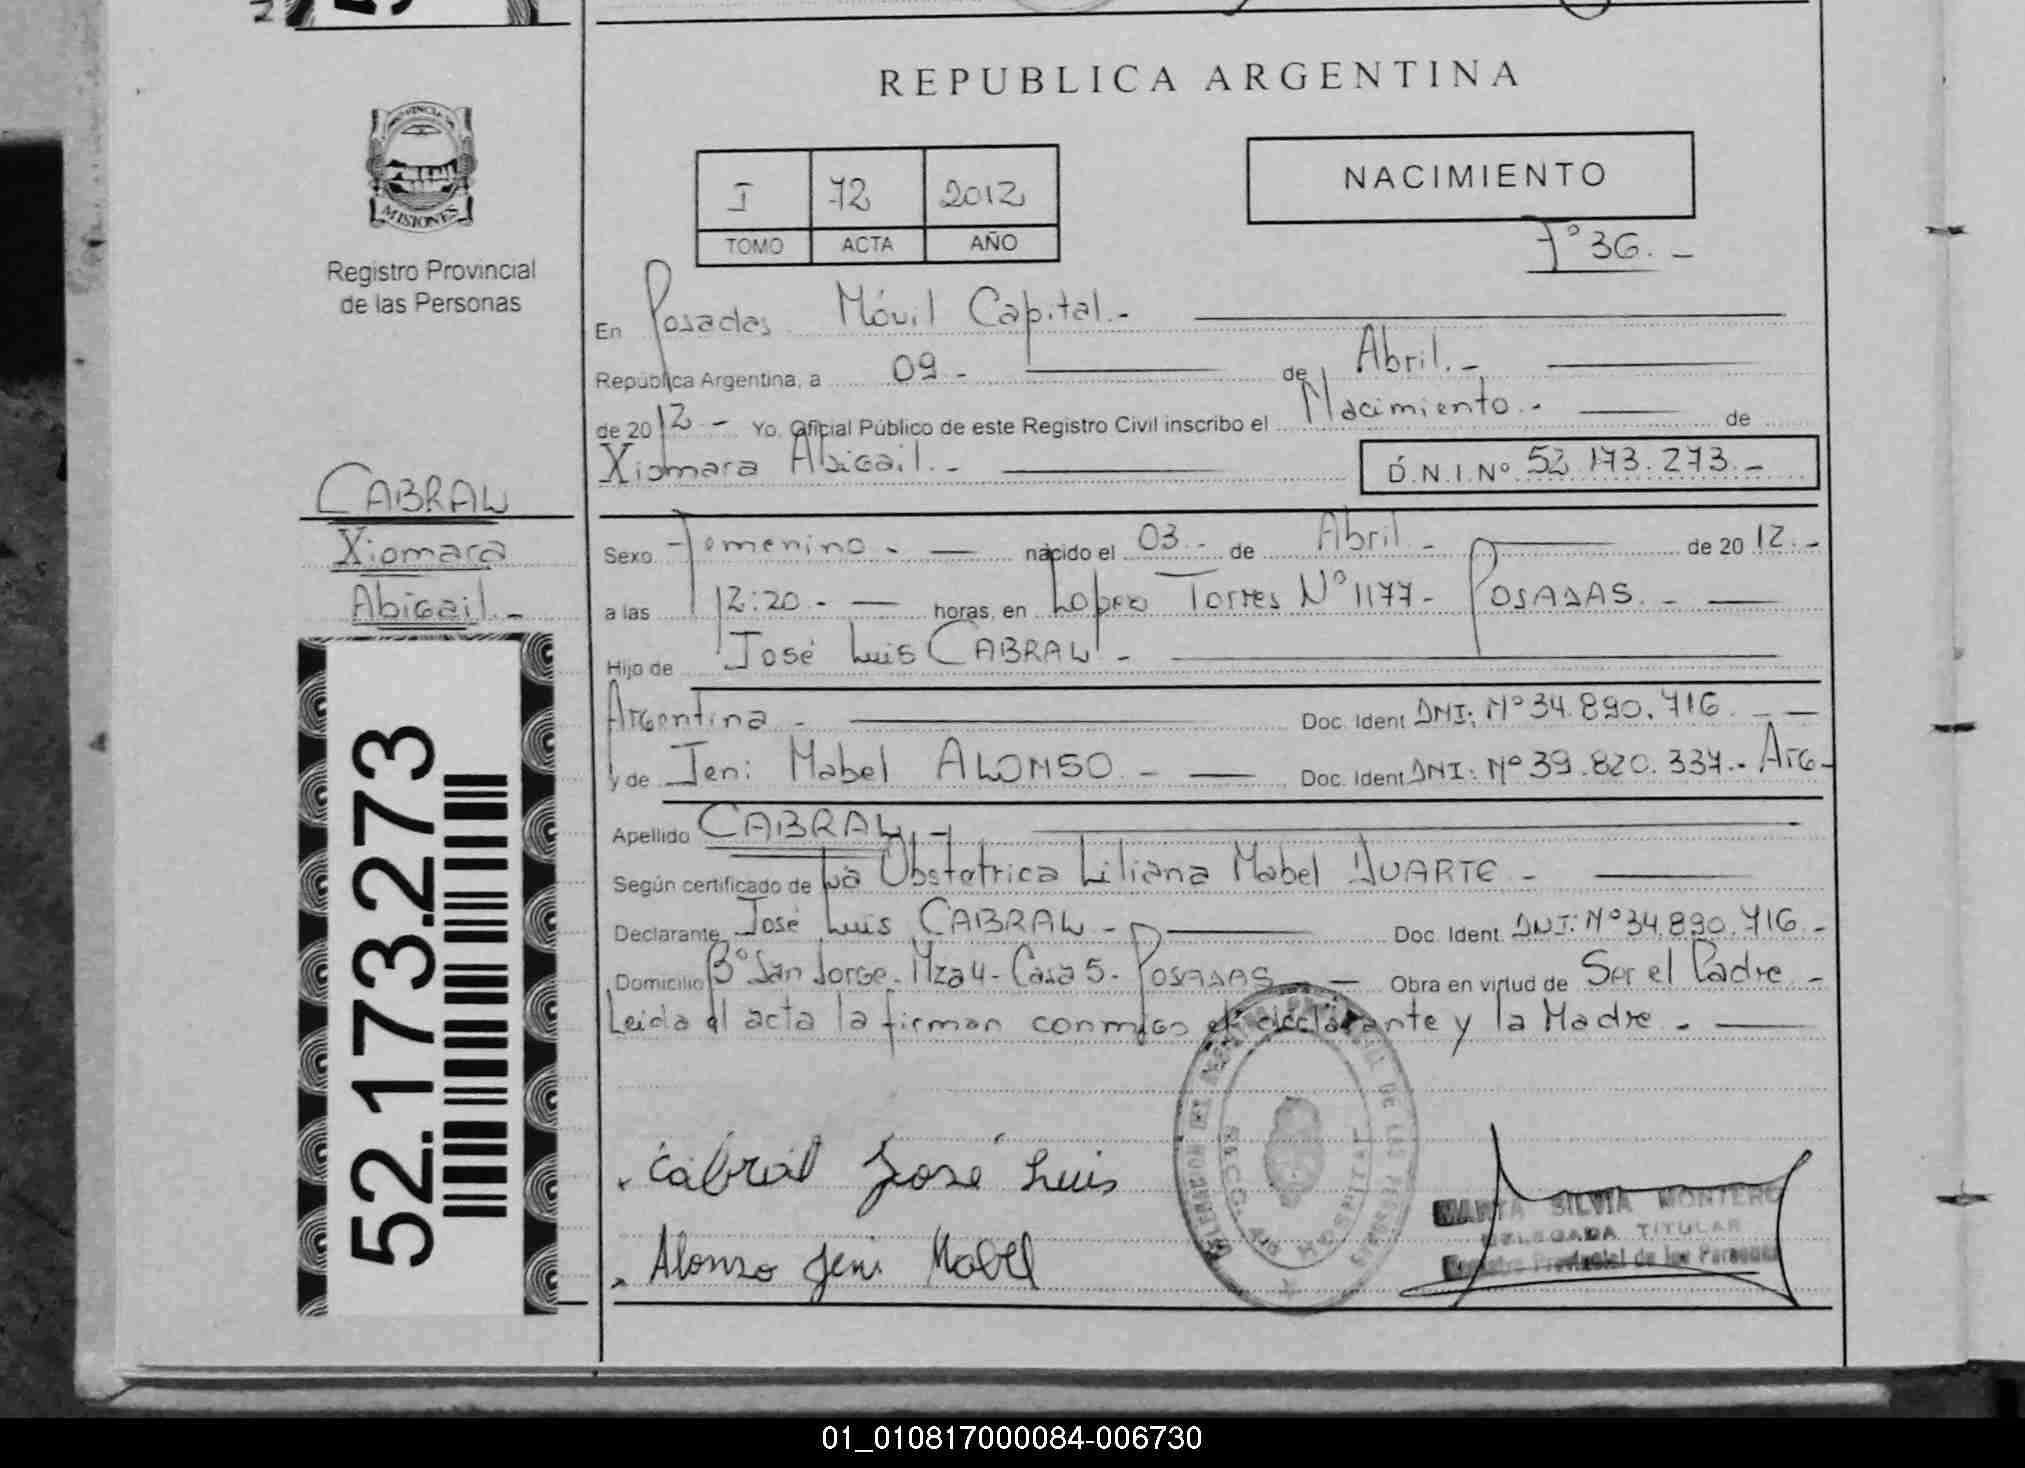 REPUBLICA ARGENTINA
PROVINCIA DE
MISIONES
Registro Provincial
de las Personas
I 72 2012
TOMO ACTA AÑO
NACIMIENTO
Fº 36.-
En Posadas Móvil Capital.-
República Argentina, a 09 - de Abril.-
de 2012 - Yo, Oficial Público de este Registro Civil inscribo el Nacimiento.- de
Xiomara Abigail.- D.N.I.Nº 52.173.273.-
CABRAL
Xiomara
Abigail.-
52.173.273
Sexo Femenino.- nacido el 03.- de Abril.- de 2012.-
a las 12:20.- horas, en Lopez Torres Nº 1177- POSADAS.-
Hijo de José Luis CABRAL.-
Argentina.- Doc. Ident. DNI: Nº 34.890.716.-
y de Jeni Mabel ALONSO.- Doc. Ident. DNI: Nº 39.820.337.- Arg-
Apellido CABRAL.-
Según certificado de La Obstetrica Liliana Mabel DUARTE.-
Declarante José Luis CABRAL.- Doc. Ident. DNI: Nº 34.890.716.-
Domicilio Bº San Jorge- Mza 4- Casa 5- POSADAS.- Obra en virtud de Ser el Padre.-
Leida el acta la firman conmigo el declarante y la Madre.-
Cabral José Luis
Alonso Jeni Mabel
HOSPITAL
MARTA SILVIA MONTERO
DELEGADA TITULAR
Registro Provincial de las Personas
01_010817000084-006730